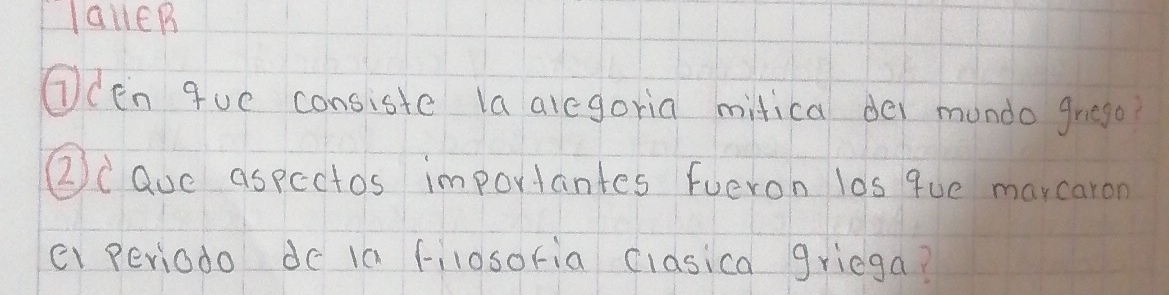 TallER
① ¿En que consiste la alegoria mitica del mundo griego?
② ¿Que aspectos importantes fueron los que marcaron
el periodo de la filosofia clasica griega?